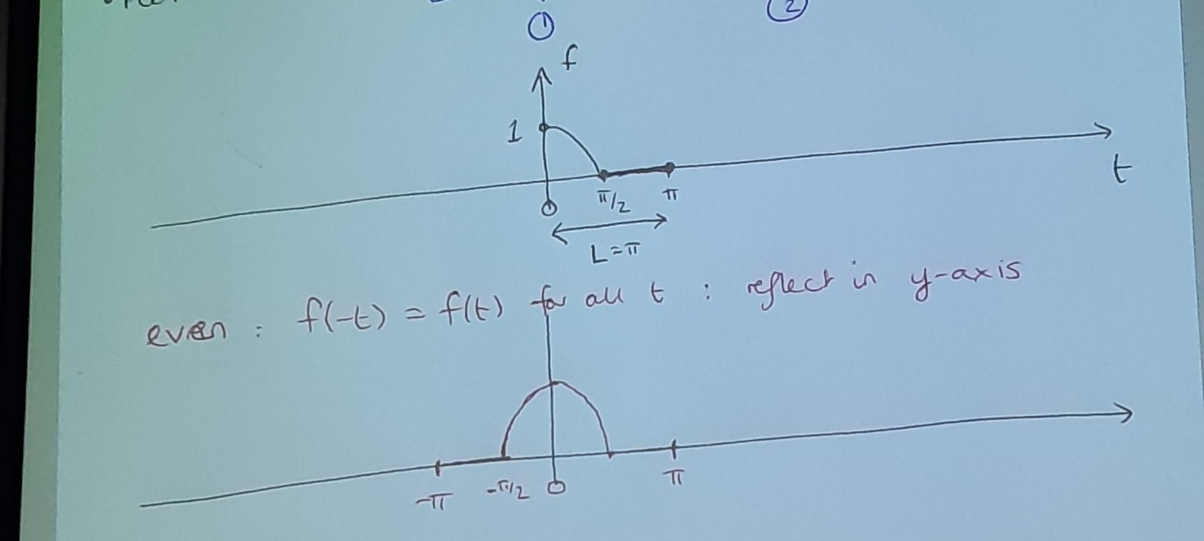 ① ②
f
1
t
π/2 π
0
L=π
even : f(-t) = f(t) for all t : reflect in y-axis
-π -π/2 0 π